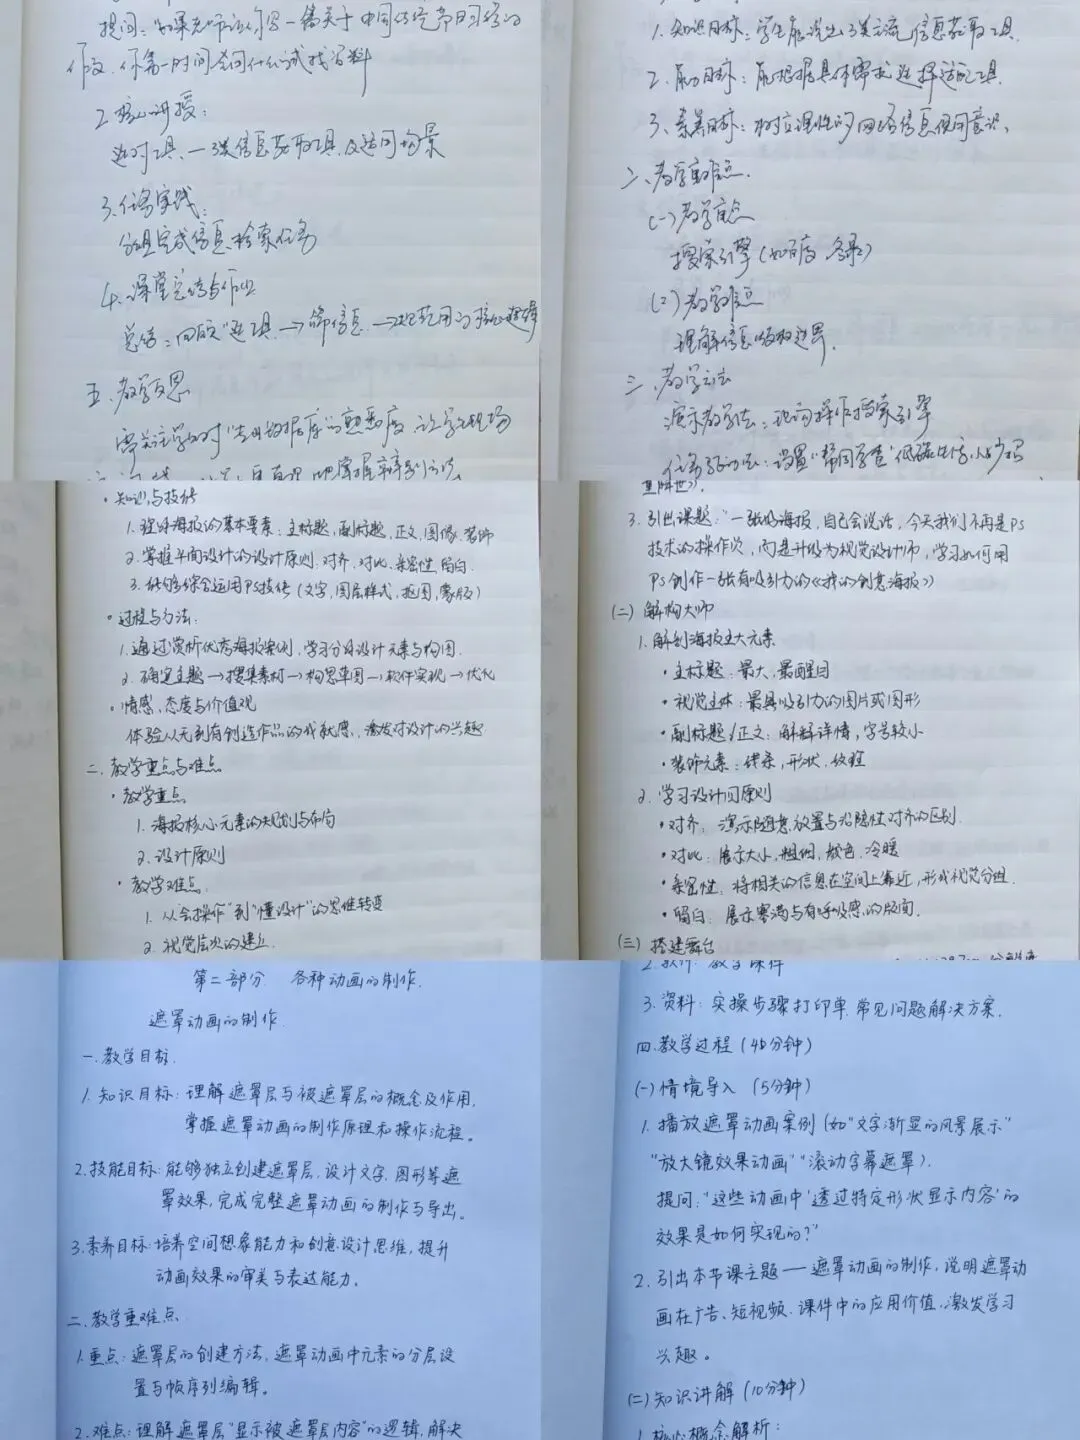 提问：如果老师让你写一篇关于中国传统节日习俗的
作文，你第一时间会向什么试找资料
2. 核心讲授：
选对工具、一3类信息获取工具及适用场景
3. 任务实践：
分组完成信息检索任务
4. 课堂总结与作业
总结：回顾"选工具→筛信息→规范用的核心逻辑
五、教学反思
需关注学生对"专业数据库"的熟悉度
1. 知识目标：学生能说出3类主流信息获取工具.
2. 能力目标：能根据具体需求选择适配工具.
3. 素养目标：树立理性的网络信息使用意识。
二、教学重难点.
(一) 教学重点
搜索引擎（如百度
(二) 教学难点
理解信息版权边界.
三、教学方法
演示教学法：现场操作搜索引擎
任务驱动法：设置"帮同学查"低碳生活小妙招
• 知识与技能
1. 理解海报的基本要素：主标题，副标题，正文，图像，装饰
2. 掌握平面设计的设计原则.对齐.对比.亲密性.留白.
3. 能够综合运用PS技能（文字，图层样式，抠图，蒙版）
• 过程与方法：
1. 通过赏析优秀海报案例，学习分析设计元素与构图.
2. 确定主题→搜集素材→构思草图→软件实现→优化
• 情感，态度与价值观
体验从无到有创造作品的成就感，激发对设计的兴趣
二、教学重点与难点
• 教学重点
1. 海报核心元素的规划与布局
2. 设计原则
• 教学难点.
1. 从会操作"到"懂设计"的思维转变
2. 视觉层次的建立.
3. 引出课题："一张好海报，自己会说话，今天我们不再是PS
技术的操作员，而是升级为视觉设计师，学习如何用
PS创作一张有吸引力的《我的创意海报》
(二) 解构大师
1. 解剖海报五大元素
• 主标题：最大，最醒目
• 视觉主体：最具吸引力的图片或图形
• 副标题/正文：解释详情，字号较小
• 装饰元素：线条，形状，纹理
2. 学习设计四原则
• 对齐：演示随意放置与沿隐性对齐的区别.
• 对比：展示大小，粗细，颜色，冷暖
• 亲密性：将相关的信息在空间上靠近，形成视觉分组.
• 留白：展示塞满与有呼吸感的版面.
(三) 搭建舞台
第二部分 各种动画的制作.
遮罩动画的制作.
一. 教学目标.
1. 知识目标：理解遮罩层与被遮罩层的概念及作用，
掌握遮罩动画的制作原理和操作流程。
2. 技能目标：能够独立创建遮罩层，设计文字、图形等遮
罩效果，完成完整遮罩动画的制作与导出。
3. 素养目标：培养空间想象能力和创意设计思维，提升
动画效果的审美与表达能力。
二. 教学重难点
1. 重点：遮罩层的创建方法，遮罩动画中元素的分层设
置与帧序列编辑。
2. 难点：理解遮罩层"显示被遮罩层内容"的逻辑，解决
2. 软件：教学课件
3. 资料：实操步骤打印单.常见问题解决方案.
四. 教学过程（40分钟）
(一) 情境导入 （5分钟）
1. 播放遮罩动画案例（如"文字渐显的风景展示"
"放大镜效果动画""滚动字幕遮罩）.
提问："这些动画中'透过特定形状显示内容'的
效果是如何实现的？"
2. 引出本节课主题——遮罩动画的制作，说明遮罩动
画在广告、短视频.课件中的应用价值，激发学习
兴趣。
(二) 知识讲解（10分钟）
1. 核心概念解析：